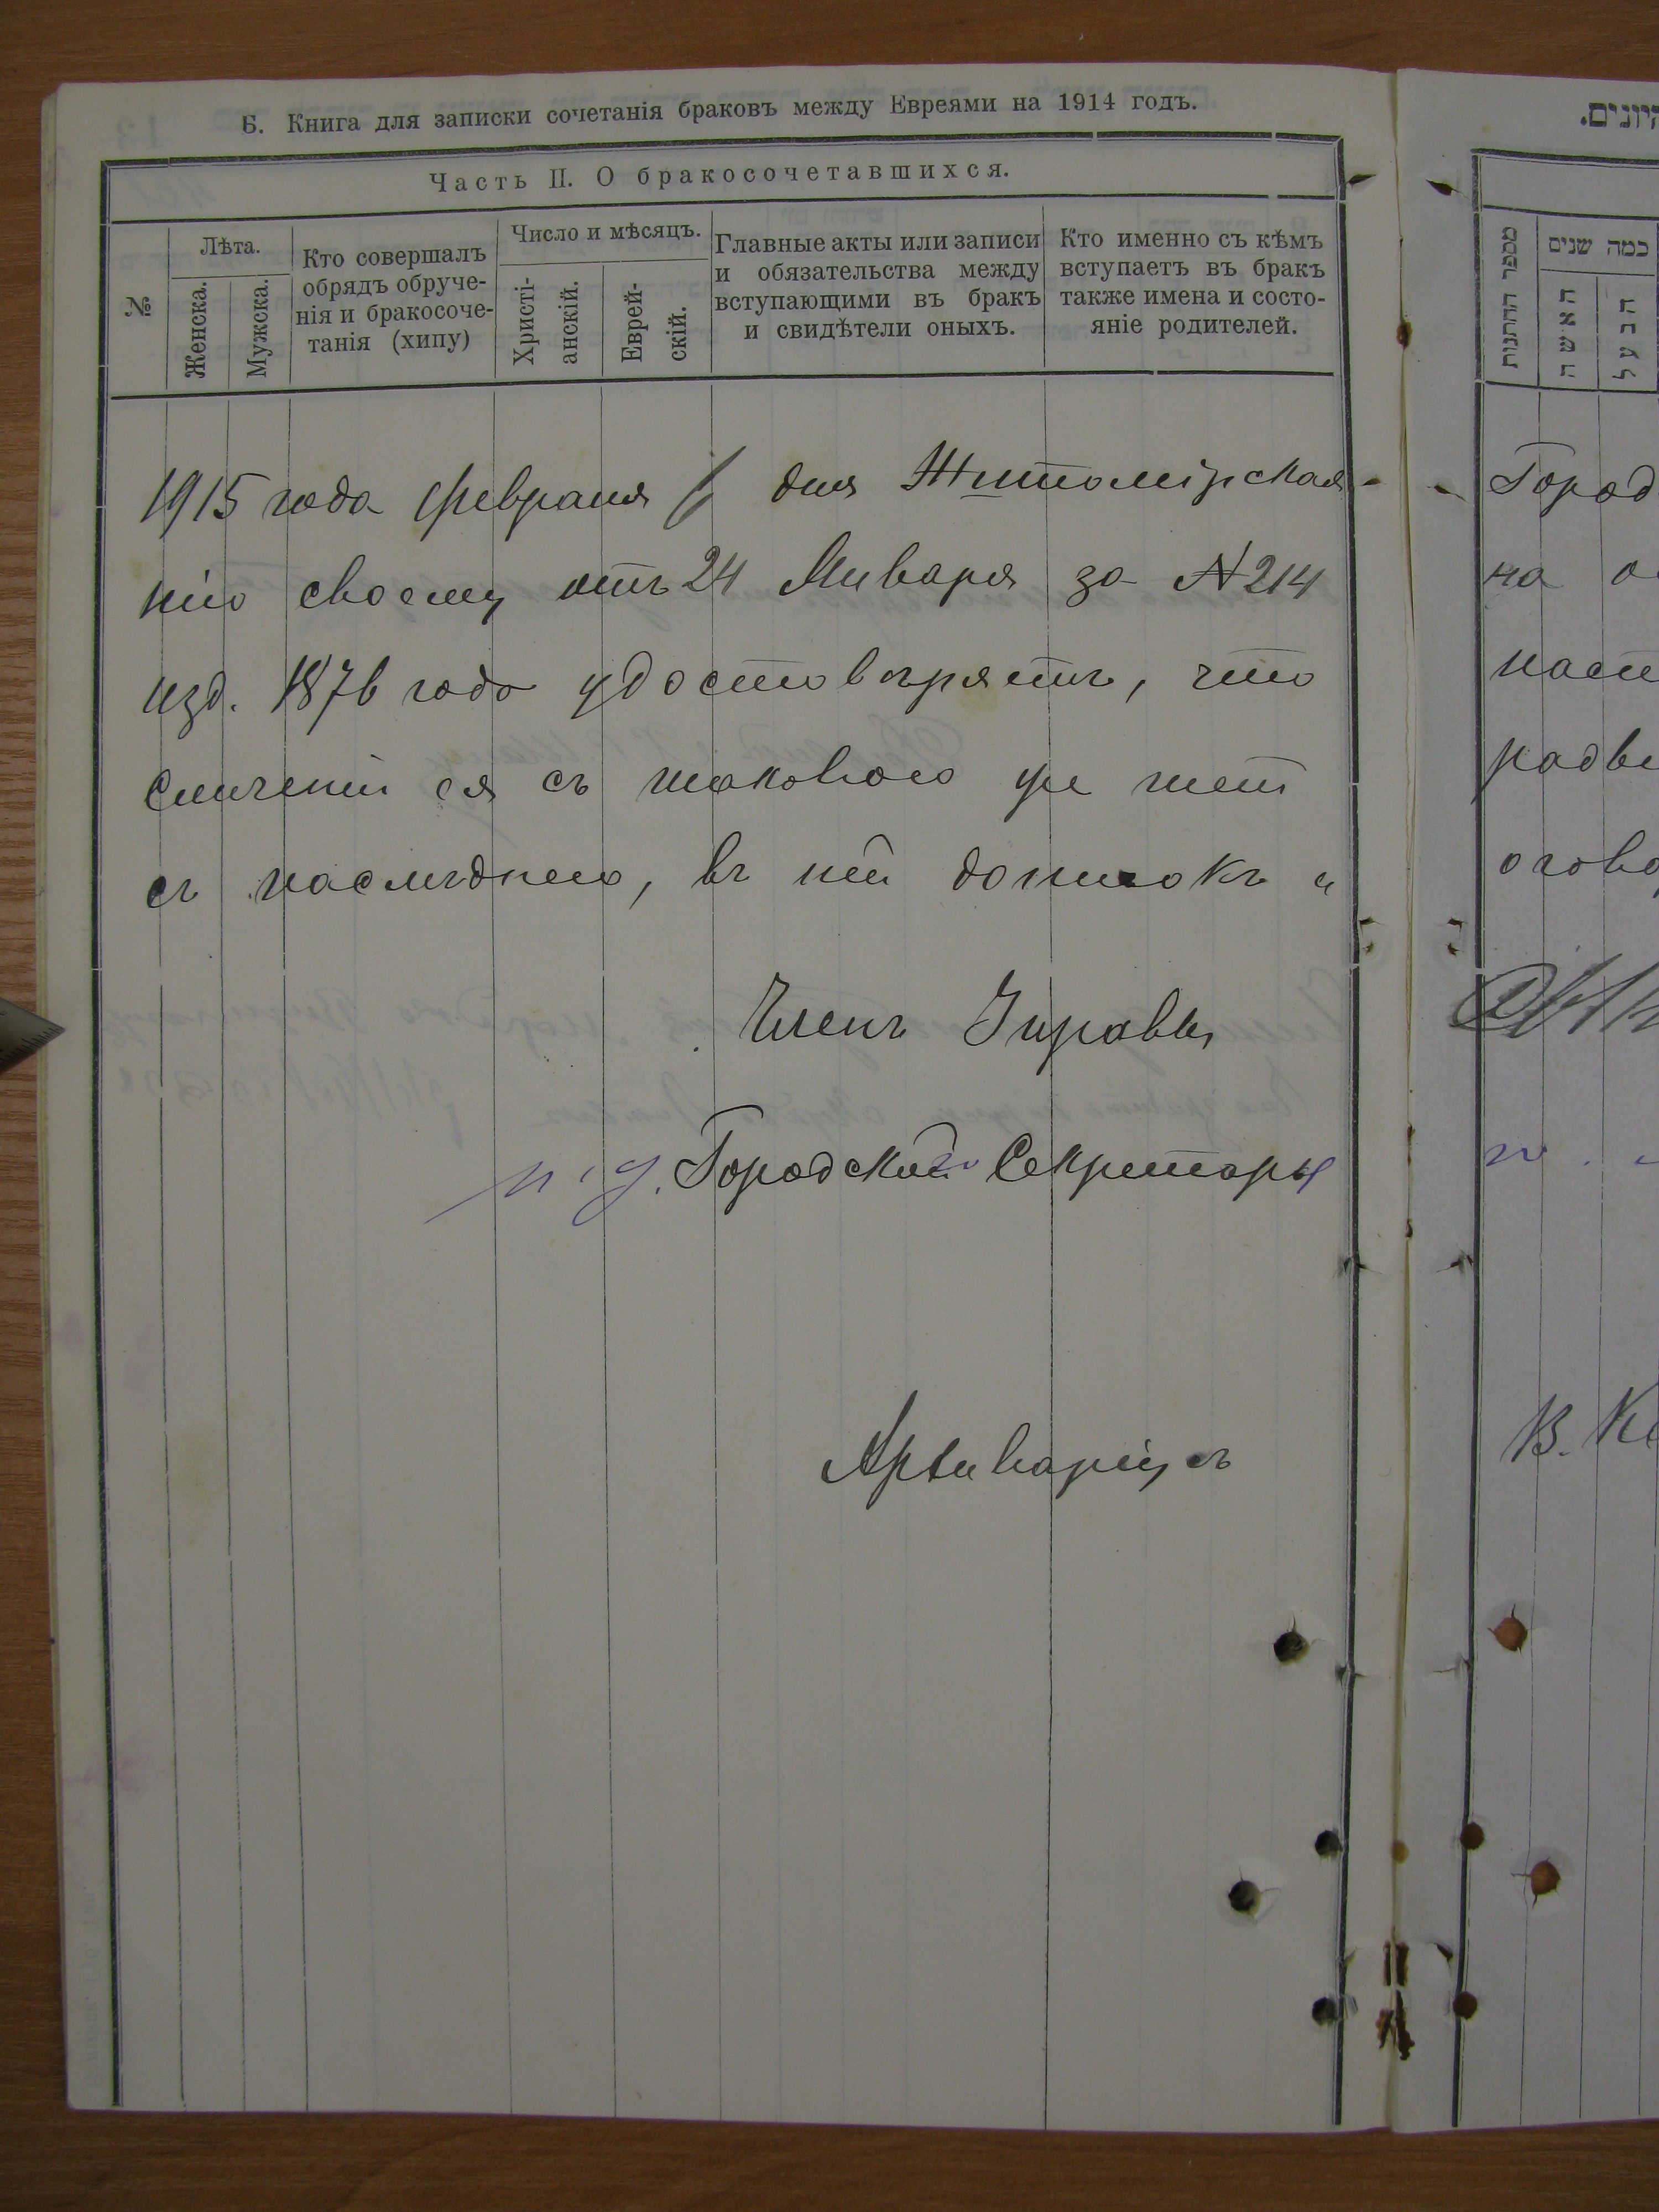 Б. Книга для записки сочетанія браковъ между Евреями на 1914 годъ.
Часть II. О бракосочетавшихся.
№
Лѣта.
Женска.
Мужска.
Кто совершалъ
обрядъ обруче-
нія и бракосоче-
танія (хипу)
Число и мѣсяцъ.
Христі-
анскій.
Еврей-
скій.
Главные акты или записи
и обязательства между
вступающими въ бракъ
и свидѣтели оныхъ.
Кто именно съ кѣмъ
вступаетъ въ бракъ
также имена и состо-
яніе родителей.
1915 года февраля дня Житомірская
нію своему отъ 24 Января за № 214
изд. 1876 года удостовѣряетъ, что
сличеніи ея съ таковою же
съ послѣднею, въ ней дописокъ и
Членъ Управы
и. д. Городского Секретаря
Архиваріусъ
מספר החתונות
כמה שנים
האשה
הבעל
Город
на
радви
огово
В.